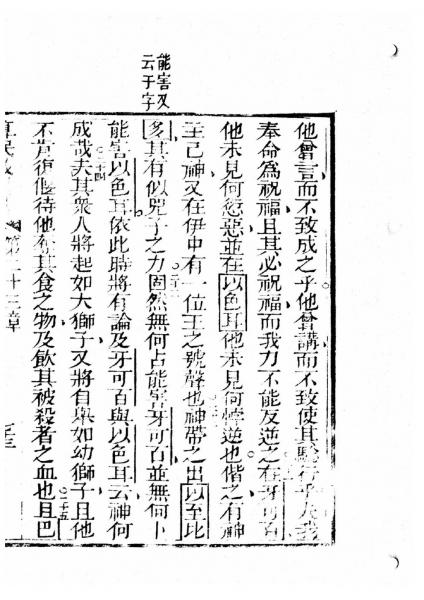 能害又
云于字
他曾言而不致成之乎他曾講而不致使其驗行乎夫我
奉命為祝福且其必祝福而我力不能反逆之在牙可百
他未見何愆惡並在以色耳他未見何悖逆也偕之有神
王己神又在伊中有一位王之號聲也神帶之出以至比
多其有似兕子之力固然無何占能害牙可百並無何卜
能害以色耳依此時將有論及牙可百與以色耳云神何
成哉夫其衆人將起如大獅子又將自舉如幼獅子且他
不肯復偃待他布其食之物及飲其被殺者之血也且巴
第二十三章